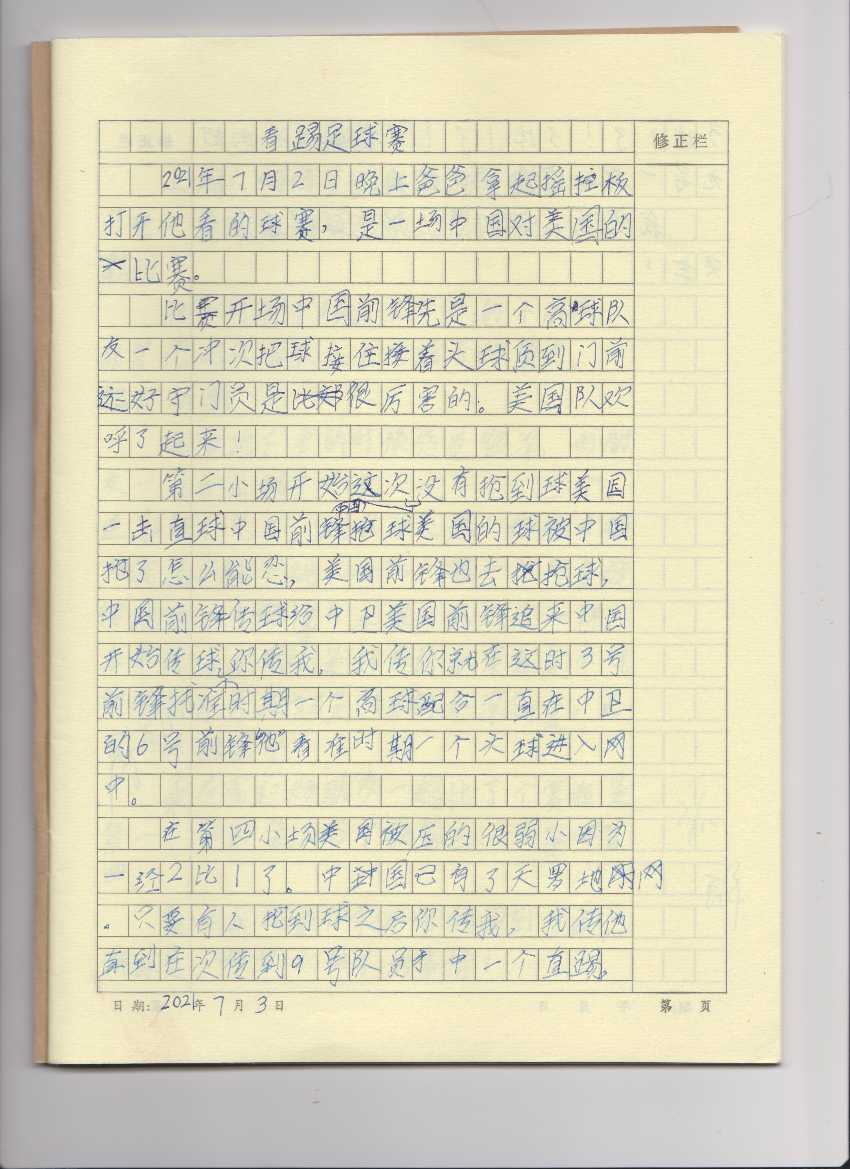 看踢足球赛
修正栏
2021年7月2日晚上爸爸拿起摇控板
打开他看的球赛，是一场中国对美国的
比赛。
比赛开场中国前锋先是一个高球队
友一个冲次把球接住接着头球顶到门前
还好守门员是比较很厉害的。美国队欢
呼了起来！
第二小场开始这次没有抢到球美国
一击直球中国前锋抢球美国的球被中国
抢了怎么能忍，美国前锋也去抢球，
中国前锋传球给中卫美国前锋追来中国
开始传球，你传我，我传你就在这时3号
前锋找准时期一个高球配合一直在中卫
的6号前锋“他”看准时期一个头球进入网
中。
在第四小场美国被压的很弱小因为
一经2比1了。中国已有了天罗地网
。只要有人抢到球之后你传我，我传他
直到在次传到9号队员手中一个直踢。
日期：2021年7月3日
第 页